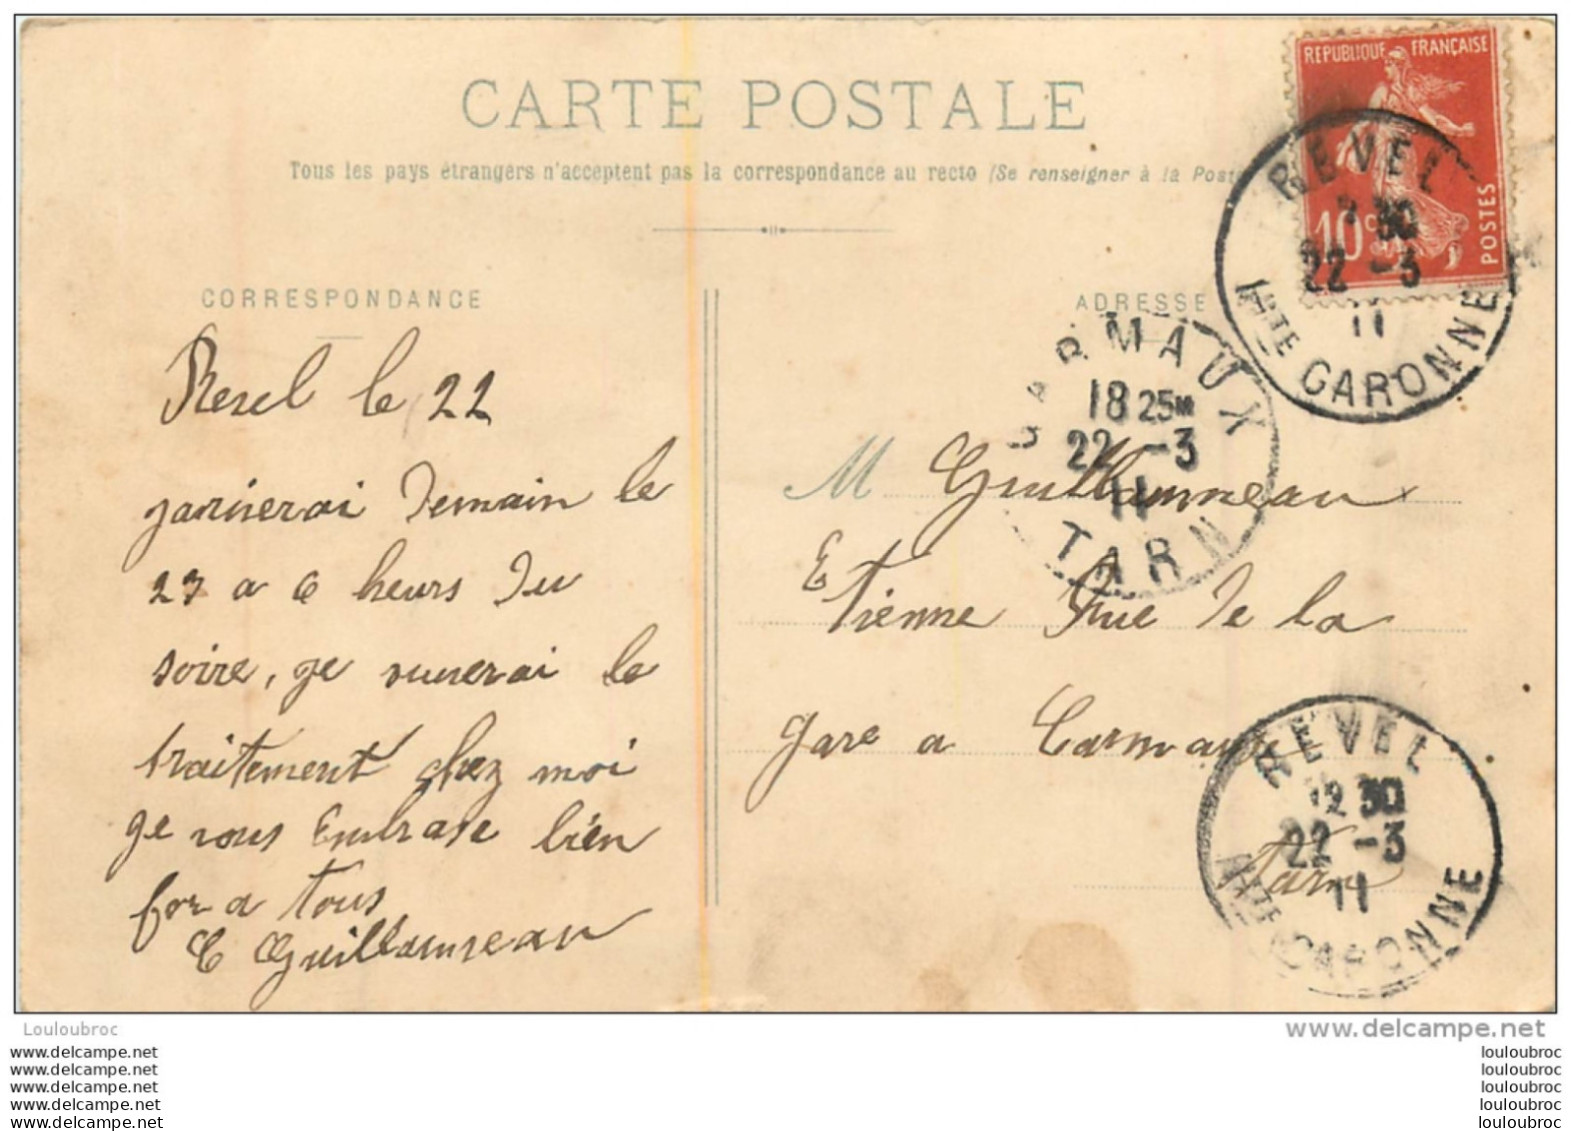 CARTE POSTALE
Tous les pays étrangers n'acceptent pas la correspondance au recto (Se renseigner à la Poste
REPUBLIQUE FRANÇAISE
10c
POSTES
REVEL
30
22 -3
11
Hte GARONNE
CORRESPONDANCE
Revel le 22
jariverai demain le
23 a 6 heurs du
soire, je suiverai le
traitement chez moi
je vous Embrase bien
for a tous
E Guillaumeau
ADRESSE
CARMAUX
18 25M
22 -3
11
TARN
M Guillaumeau
Etienne Rue de la
gare a Carmaux
Tarn
REVEL
12 30
22 -3
11
Hte GARONNE
Louloubroc
www.delcampe.net
www.delcampe.net
www.delcampe.net
www.delcampe.net
www.delcampe.net
www.delcampe.net
louloubroc
louloubroc
louloubroc
louloubroc
louloubroc